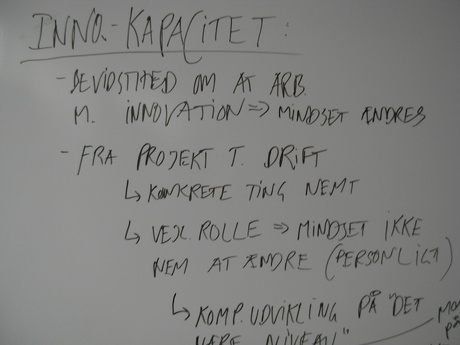 INNO.-KAPACITET:
- BEVIDSTHED OM AT ARB.
M. INNOVATION => MINDSET ÆNDRES
- FRA PROJEKT T. DRIFT
↳ KONKRETE TING NEMT
↳ VEJL. ROLLE => MINDSET IKKE
NEM AT ÆNDRE (PERSONLIGT)
↳ KOMP. UDVIKLING PÅ "DET
NÆRE NIVEAU"
på